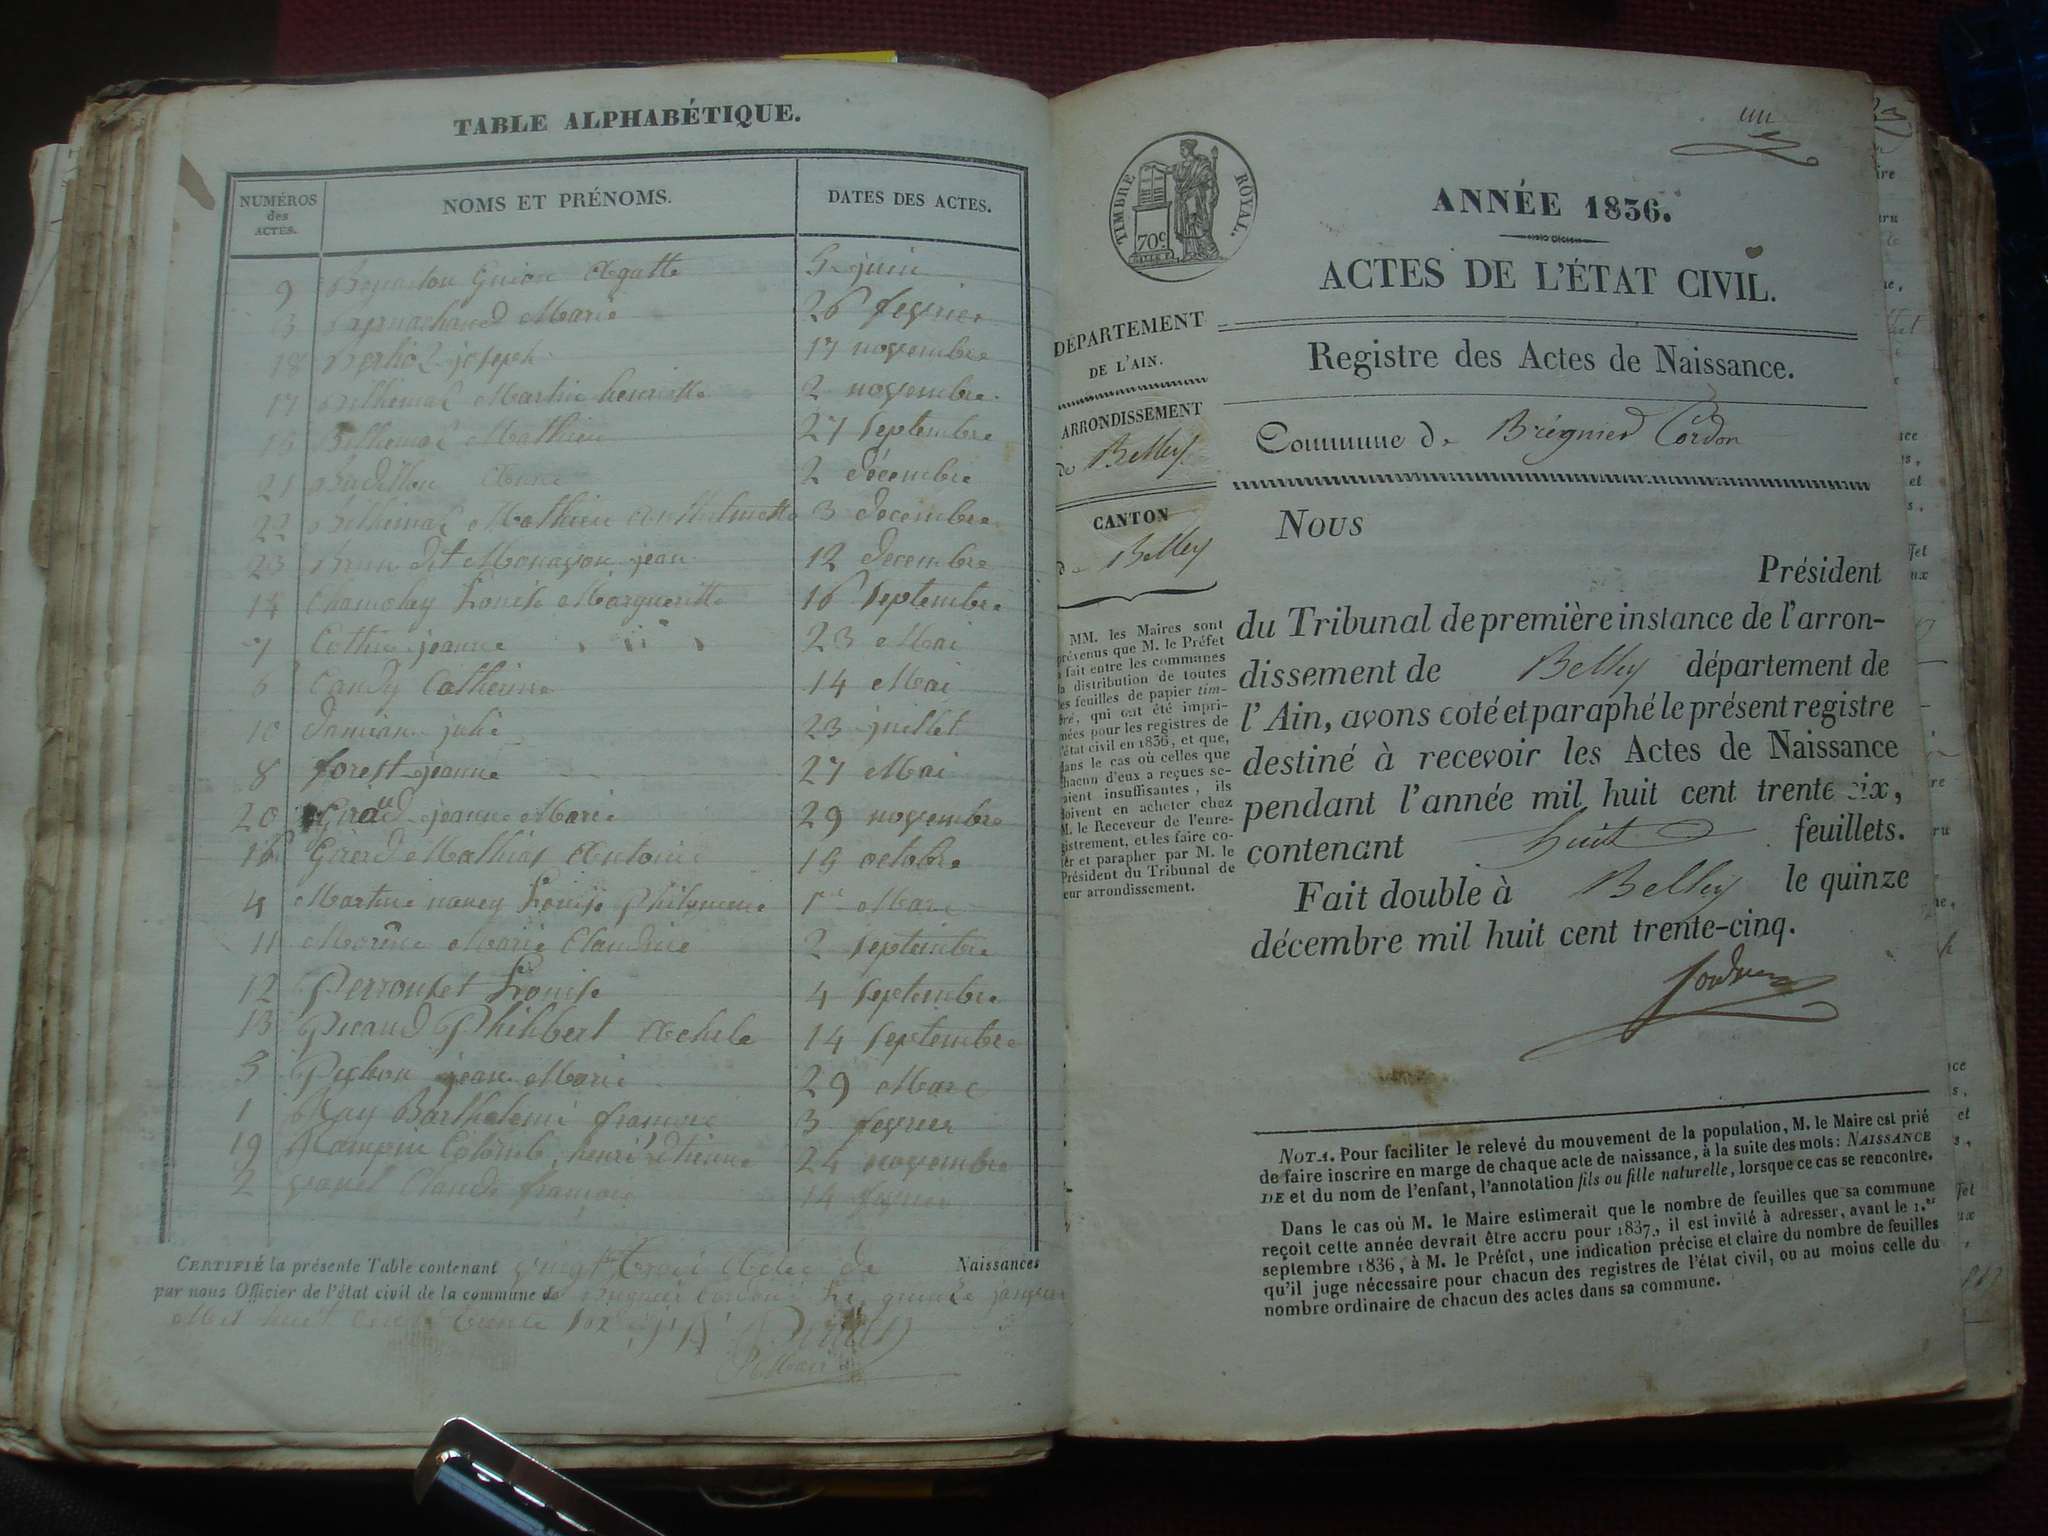 TABLE ALPHABÉTIQUE.
NUMÉROS des ACTES. NOMS ET PRÉNOMS. DATES DES ACTES.
9 Guion Agatte 5 juin
3 Marie 26 fevrier
18 joseph 17 novembre
17 Bithemat Martin henriette 2 novembre
15 Bithemat Mathieu 27 Septembre
21 Badillou 2 décembre
22 Bithemat Mathieu 3 decembre
23 Brun dit Monavon jean 12 decembre
14 Louise Margueritte 16 Septembre
7 Cottin jeanne 23 Mai
6 Candy Catherine 14 Mai
10 Damian julie 23 juillet
8 forest jeanne 27 Mai
20 Giraud jeanne Marie 29 novembre
16 Girerd Mathias Antoine 19 octobre
4 Martin nancy Louise 1er Mars
11 Morène Marie Claudine 2 Septembre
12 Perrouset Louise 4 Septembre
13 Picaud Philibert Achile 14 Septembre
5 Pichon jean Marie 29 Mars
1 Ray Barthelemi francois 3 fevrier
19 Colomb henri Etienne 24 novembre
2 Claude francois 14 fevrier
CERTIFIÉ la présente Table contenant vingt trois Actes de Naissances
par nous Officier de l'état civil de la commune de Brégnier Cordon le quinze janvier
Mil huit cent trente
Le Maire
un
TIMBRE ROYAL.
70c
ANNÉE 1836.
ACTES DE L'ÉTAT CIVIL.
DÉPARTEMENT
DE L'AIN.
ARRONDISSEMENT
de Belley
CANTON
de Belley
MM. les Maires sont
prévenus que M. le Préfet
a fait entre les communes
la distribution de toutes
les feuilles de papier tim-
bré, qui ont été impri-
mées pour les registres de
l'état civil en 1836, et que,
dans le cas où celles que
chacun d'eux a reçues se-
raient insuffisantes, ils
doivent en acheter chez
M. le Receveur de l'enre-
gistrement, et les faire co-
ter et parapher par M. le
Président du Tribunal de
leur arrondissement.
Registre des Actes de Naissance.
Commune de Brégnier Cordon
NOUS
Président
du Tribunal de première instance de l'arron-
dissement de Belley département de
l'Ain, avons coté et paraphé le présent registre
destiné à recevoir les Actes de Naissance
pendant l'année mil huit cent trente six,
contenant huit feuillets.
Fait double à Belley le quinze
décembre mil huit cent trente-cinq.
NOTA. Pour faciliter le relevé du mouvement de la population, M. le Maire est prié
de faire inscrire en marge de chaque acte de naissance, à la suite des mots: NAISSANCE
DE et du nom de l'enfant, l'annotation fils ou fille naturelle, lorsque ce cas se rencontre.
Dans le cas où M. le Maire estimerait que le nombre de feuilles que sa commune
reçoit cette année devrait être accru pour 1837, il est invité à adresser, avant le 1.er
septembre 1836, à M. le Préfet, une indication précise et claire du nombre de feuilles
qu'il juge nécessaire pour chacun des registres de l'état civil, ou au moins celle du
nombre ordinaire de chacun des actes dans sa commune.